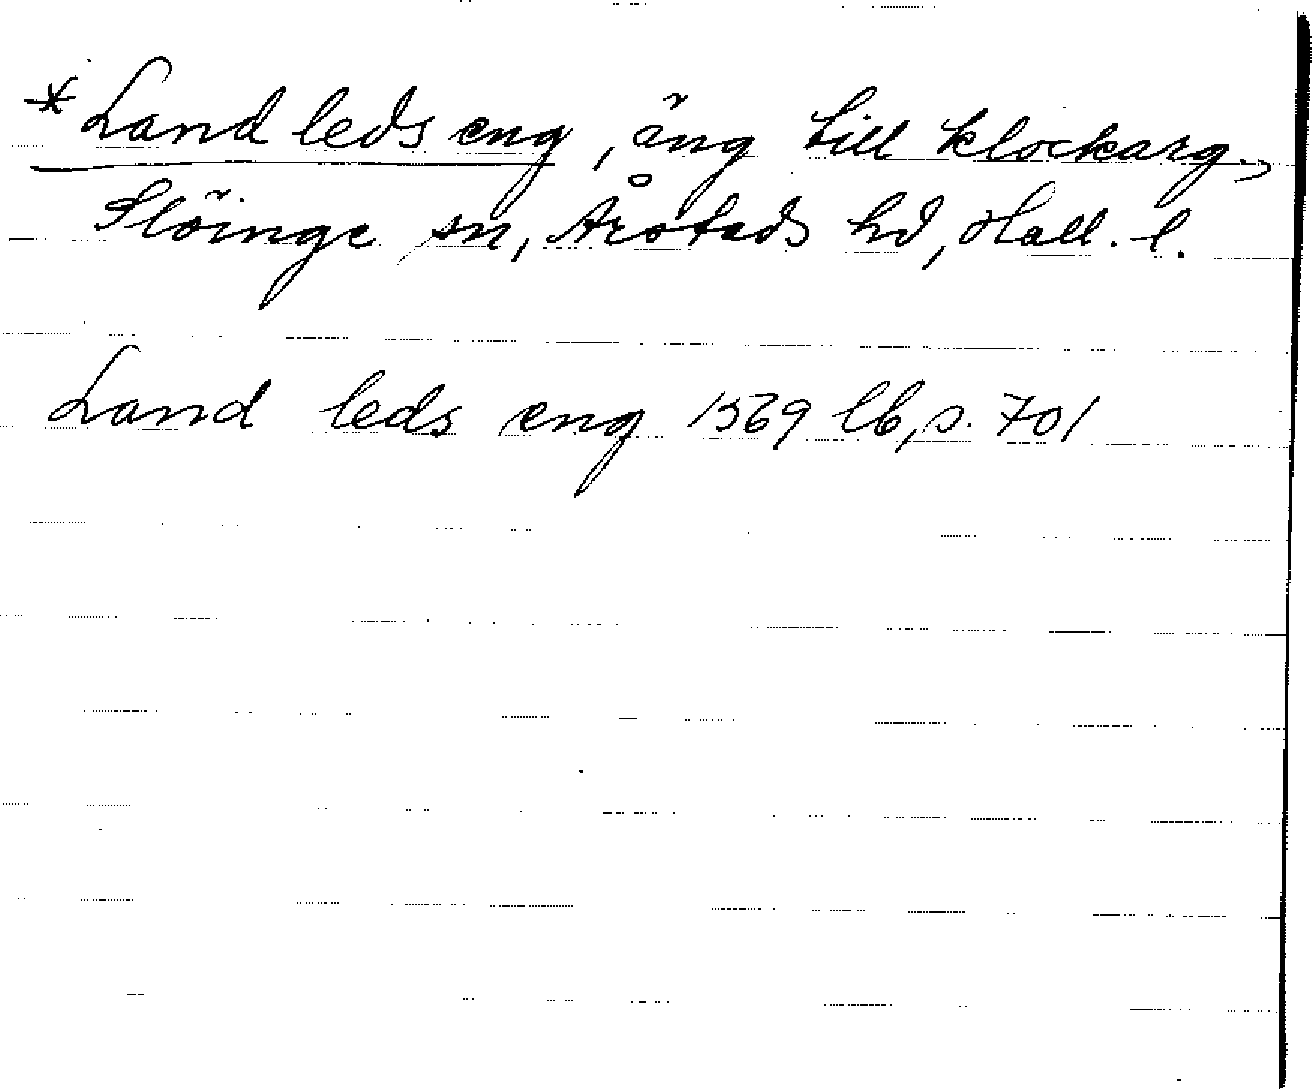 * Land leds eng, äng till klockarg.,
Slöinge sn, Årstads hd, Hall. l.
Land leds eng 1569 lb, s. 701